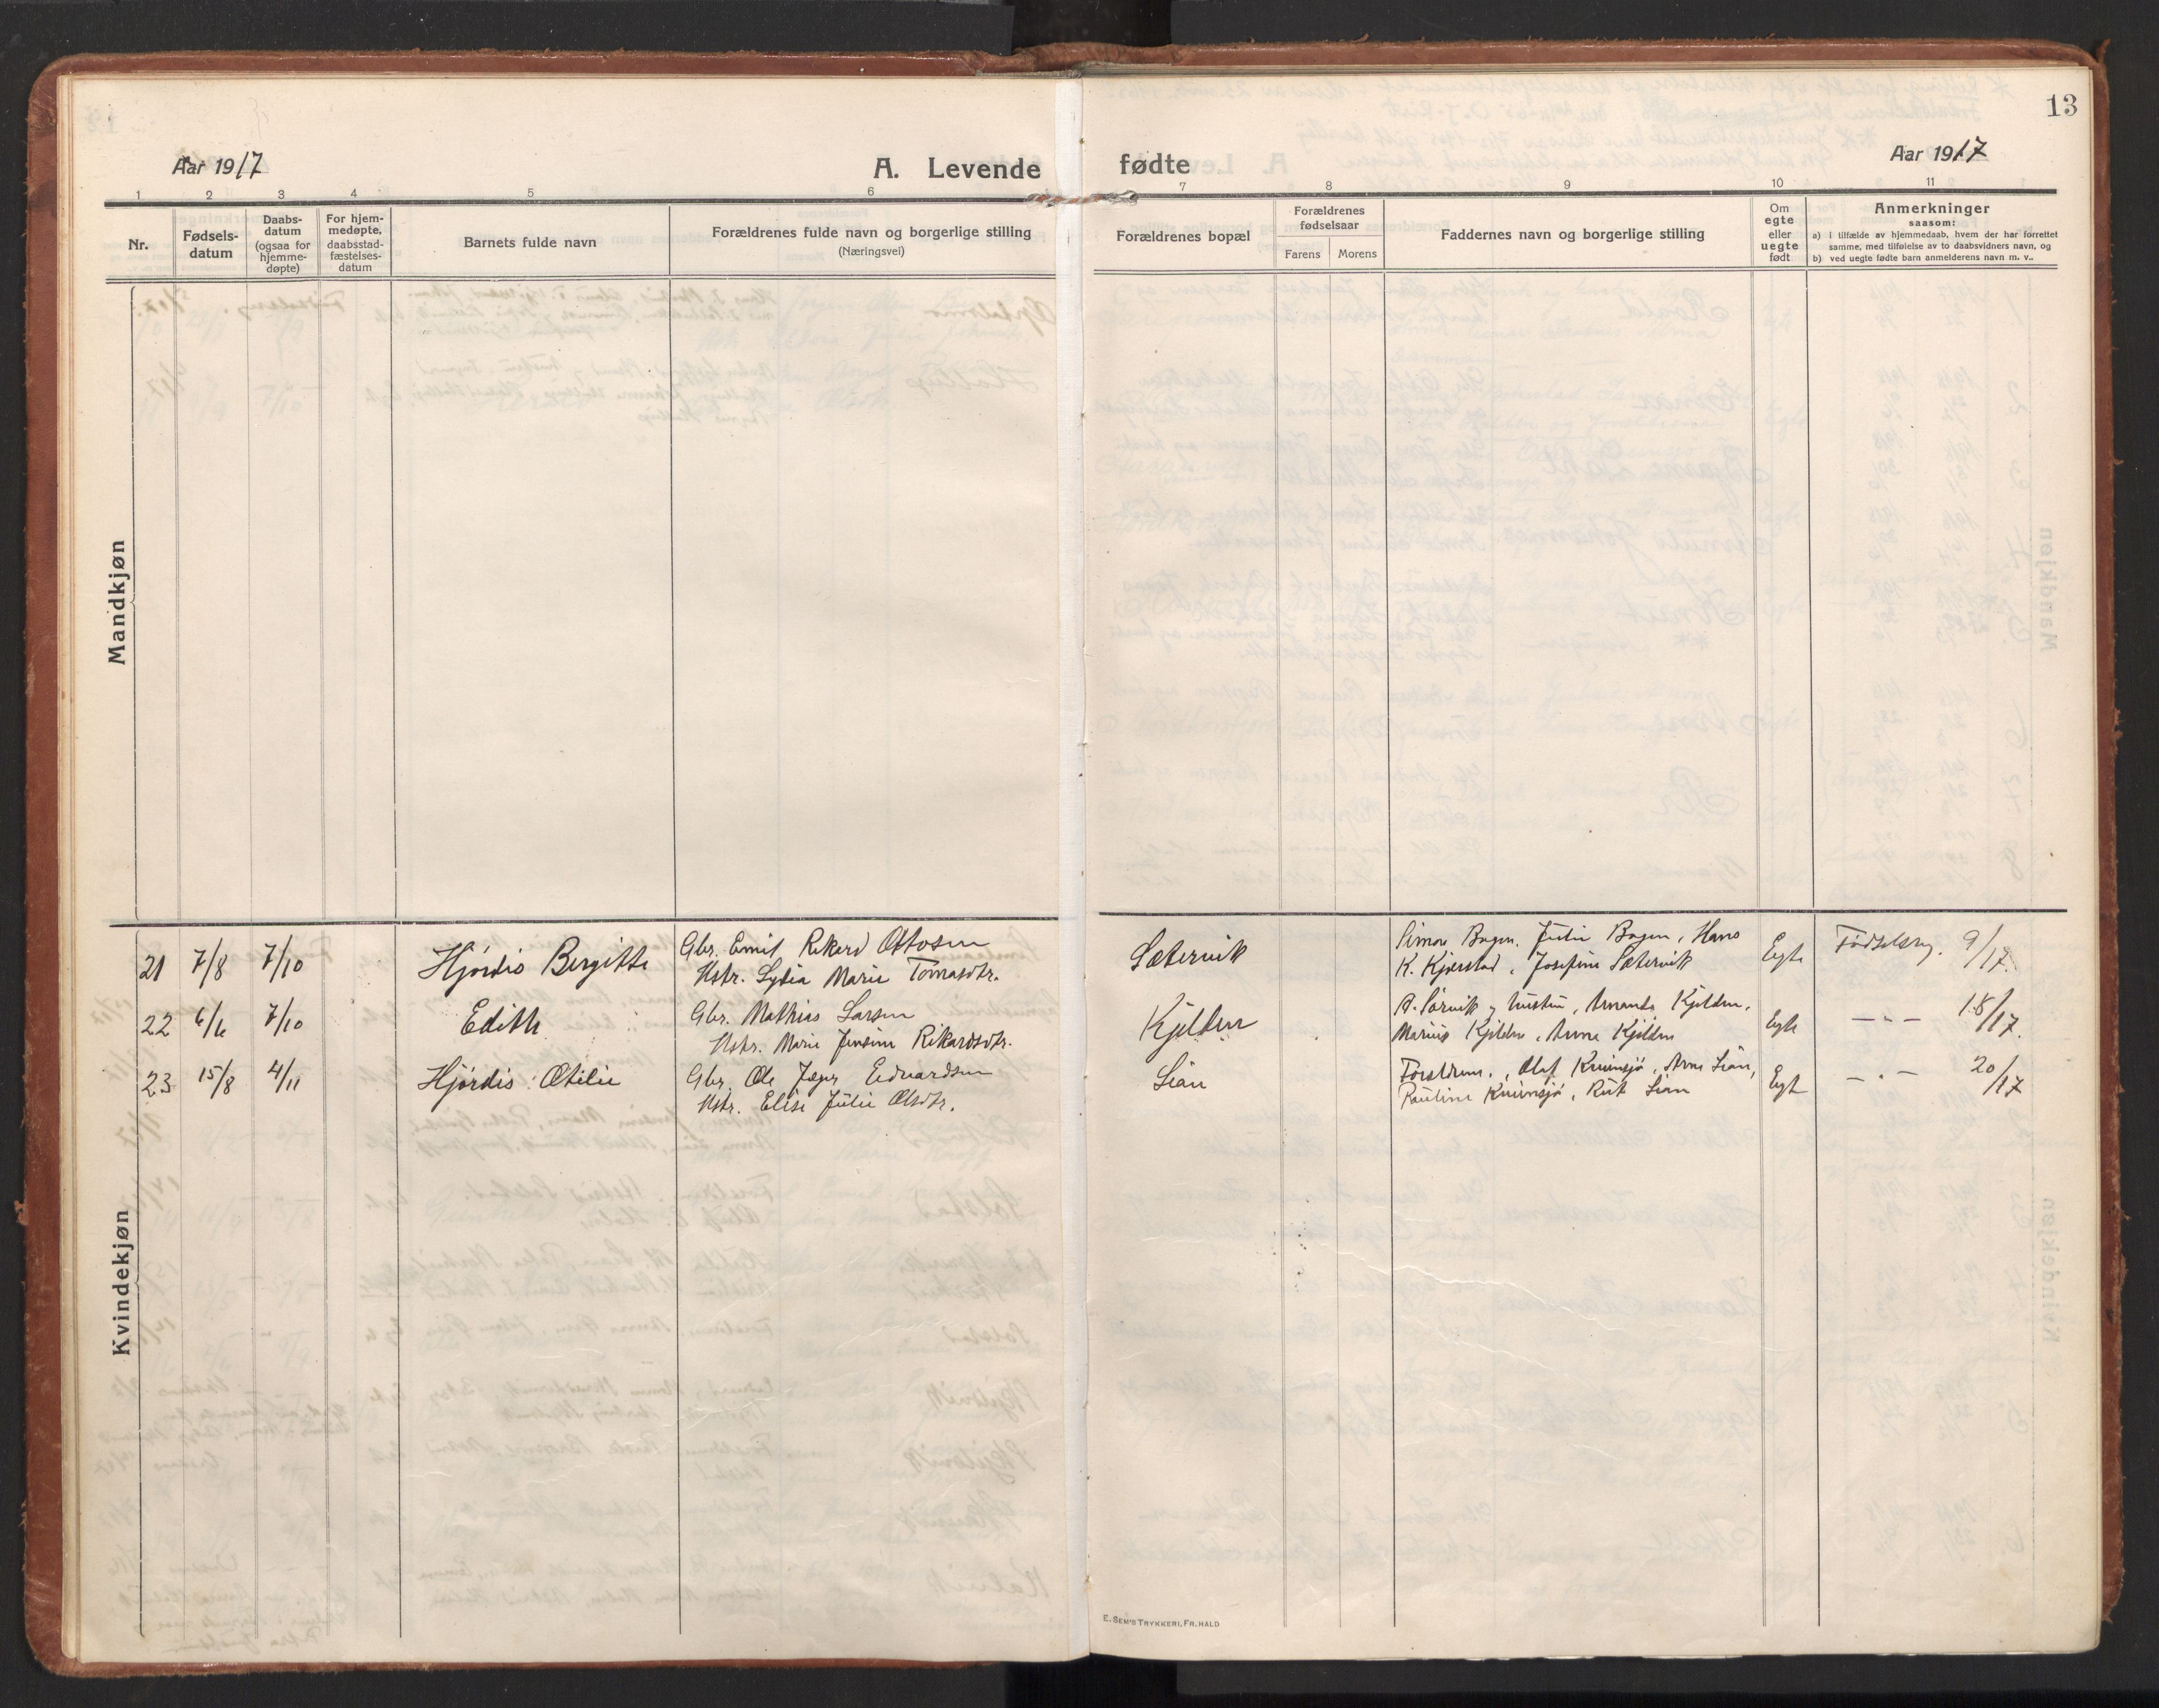 13
Aar 1917
A. Levende fødte
Aar 1917
1 2 3 4 5 6 7 8 9 10 11
Nr.
Fødsels-
datum
Daabs-
datum
(ogsaa for
hjemme-
døpte)
For hjem-
medøpte,
daabsstad-
fæstelses-
datum
Barnets fulde navn
Forældrenes fulde navn og borgerlige stilling
(Næringsvei)
Forældrenes bopæl
Forældrenes
fødselsaar
Farens Morens
Faddernes navn og borgerlige stilling
Om
egte
eller
uegte
født
Anmerkninger
saasom:
a) i tilfælde av hjemmedaab, hvem der har forrettet
samme, med tilføielse av to daabsvidners navn, og
b) ved uegte fødte barn anmelderens navn m. v..
Mandkjøn
Kvindekjøn
21 7/8 7/10 Hjördis Bergitte
Gbr. Emil Rikard Ottosen
Hstr. Lydia Marie Tomasdtr.
Sætervik
Simon Bogen, Julie Bogen, Hans
K. Kjærstad, Josefine Sætervik
Egte
Fødselsreg. 9/17.
22 6/6 7/10 Edith
Gbr. Mathias Larsen
Hstr. Marie Jensine Rikardsdtr.
Kjelden
A. Sørvik og hustru, Amanda Kjelden,
Marius Kjelden, Anna Kjelden
Egte
— " — 18/17.
23 15/8 4/11 Hjördis Otilie
Gbr. Ole Jæger Edvardsen
Hstr. Elise Julie Olsdtr.
Lian
Foreldrene, Olaf Kvinnsjø, Arne Lian,
Pauline Kvinnsjø, Rut Lian
Egte
— " — 20/17
E. SEM'S TRYKKERI, FR.HALD